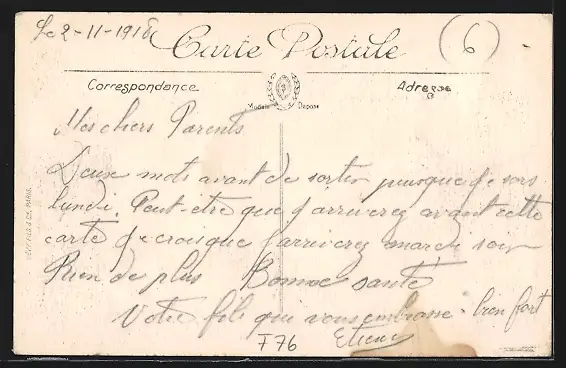 Le 2-11-1918
(6)
Carte Postale
Correspondance
Adresse
Modèle Déposé
Mes chers Parents
Deux mots avant de sortir puisque je sors
lundi. Peut-etre que j'arriverez avant cette
carte je crois que j'arriverez mardi soir
Rien de plus Bonne santé
Votre fils qui vous embrasse bien fort
Etienne
F76